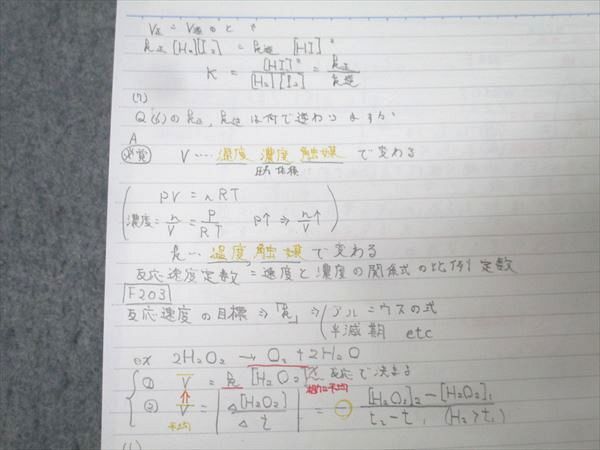 V正 = V逆 のとき
k正[H₂][I₂] = k逆 [HI]²
K = [HI]² / [H₂][I₂] = k正 / k逆
(7)
Q (6)の k正, k逆 は何で変わりますか
A
V … 温度 濃度 触媒 で変わる
圧力 体積
PV = nRT
濃度 = n/V = P/RT P↑ ⇒ n/V ↑
k … 温度 触媒 で変わる
反応速度定数 = 速度と濃度の関係式の比例定数
F203
反応速度の目標 ⇒「k」⇒ アルニウスの式
半減期 etc
ex 2H₂O₂ → O₂ + 2H₂O
① V̄ = k [H₂O₂]ˣ 反応で決まる
② V̄ = |Δ[H₂O₂] / Δt| = − [H₂O₂]₂ − [H₂O₂]₁ / t₂ − t₁ (t₂ > t₁)
平均